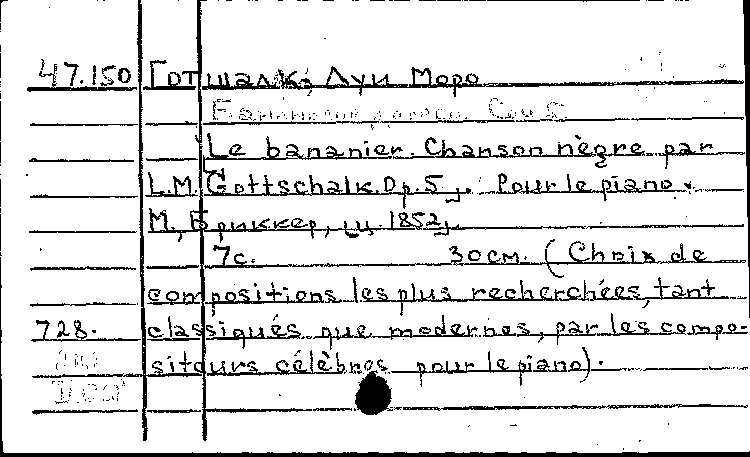 47.150 Готшалк, Луи Моро
Соч. 5
Le bananier. Chanson nègre par
L.M. Gottschalk. Op. 5. Pour le piano.
М., Бриккер, ц. 1852,
7с. 30см. (Choix de
compositions les plus recherchées, tant
728. classiqués que modernes, par les compo-
siteurs célèbres pour le piano).